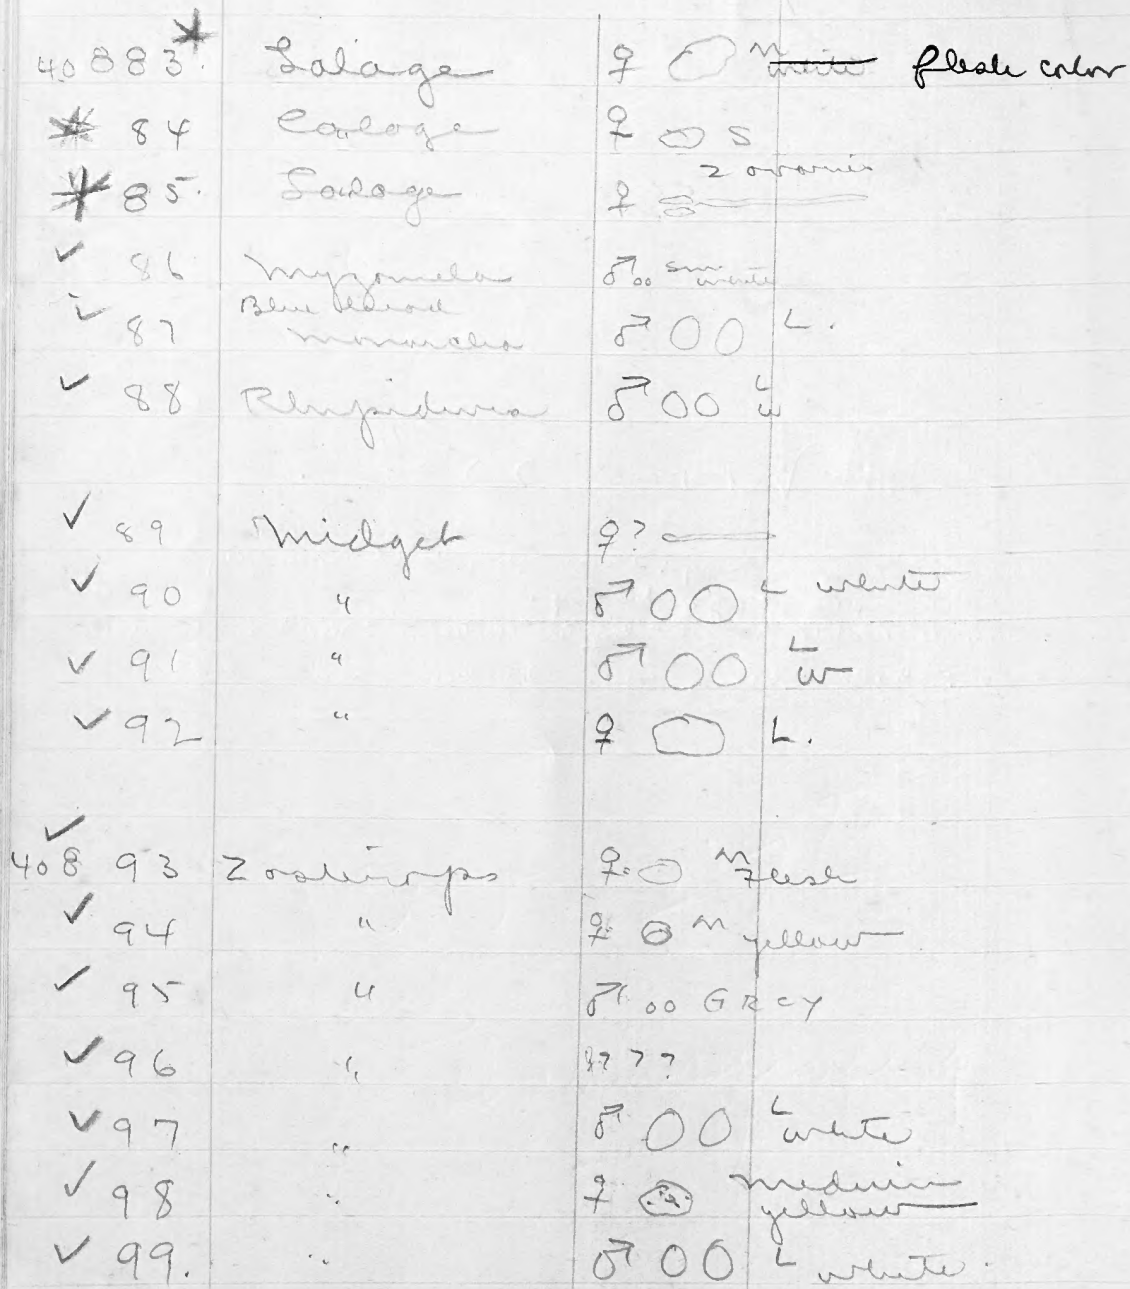 40883. Lalage ♀ M white flesh color
84 Lalage ♀ S
85. Lalage ♀ 2 ovaries
86 Myzomela ♂ sm white
87 Blue Monarcha ♂ L.
88 Rhipidura ♂ L W
89 Midget ♀?
90 " ♂ L white
91 " ♂ L W
92 " ♀ L.
40893 Zosterops ♀ M Flesh
94 " ♀ M yellow
95 " ♂ GREY
96 " ???
97 " ♂ L white
98 " ♀ Medium yellow
99. " ♂ L white.